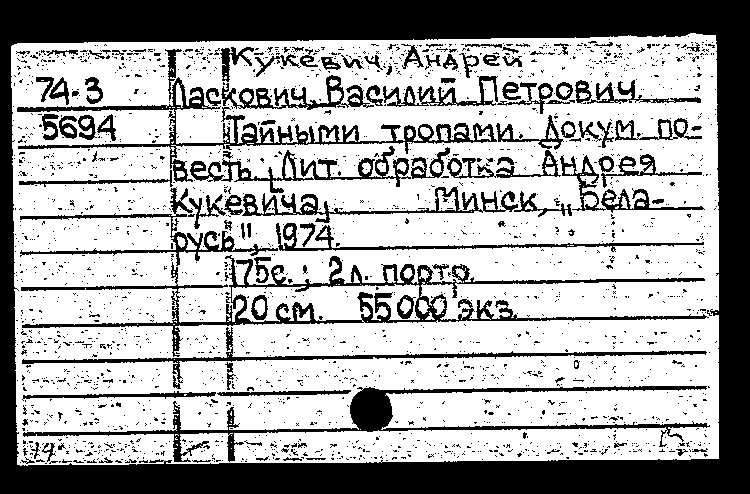 Кукевич, Андрей
74-3 Ласкович, Василий Петрович.
5694 Тайными тропами. Докум. по-
весть. [Лит. обработка Андрея
Кукевича]. Минск, "Бела-
русь", 1974.
175с.; 2 л. портр.
20 см. 55000 экз.
14